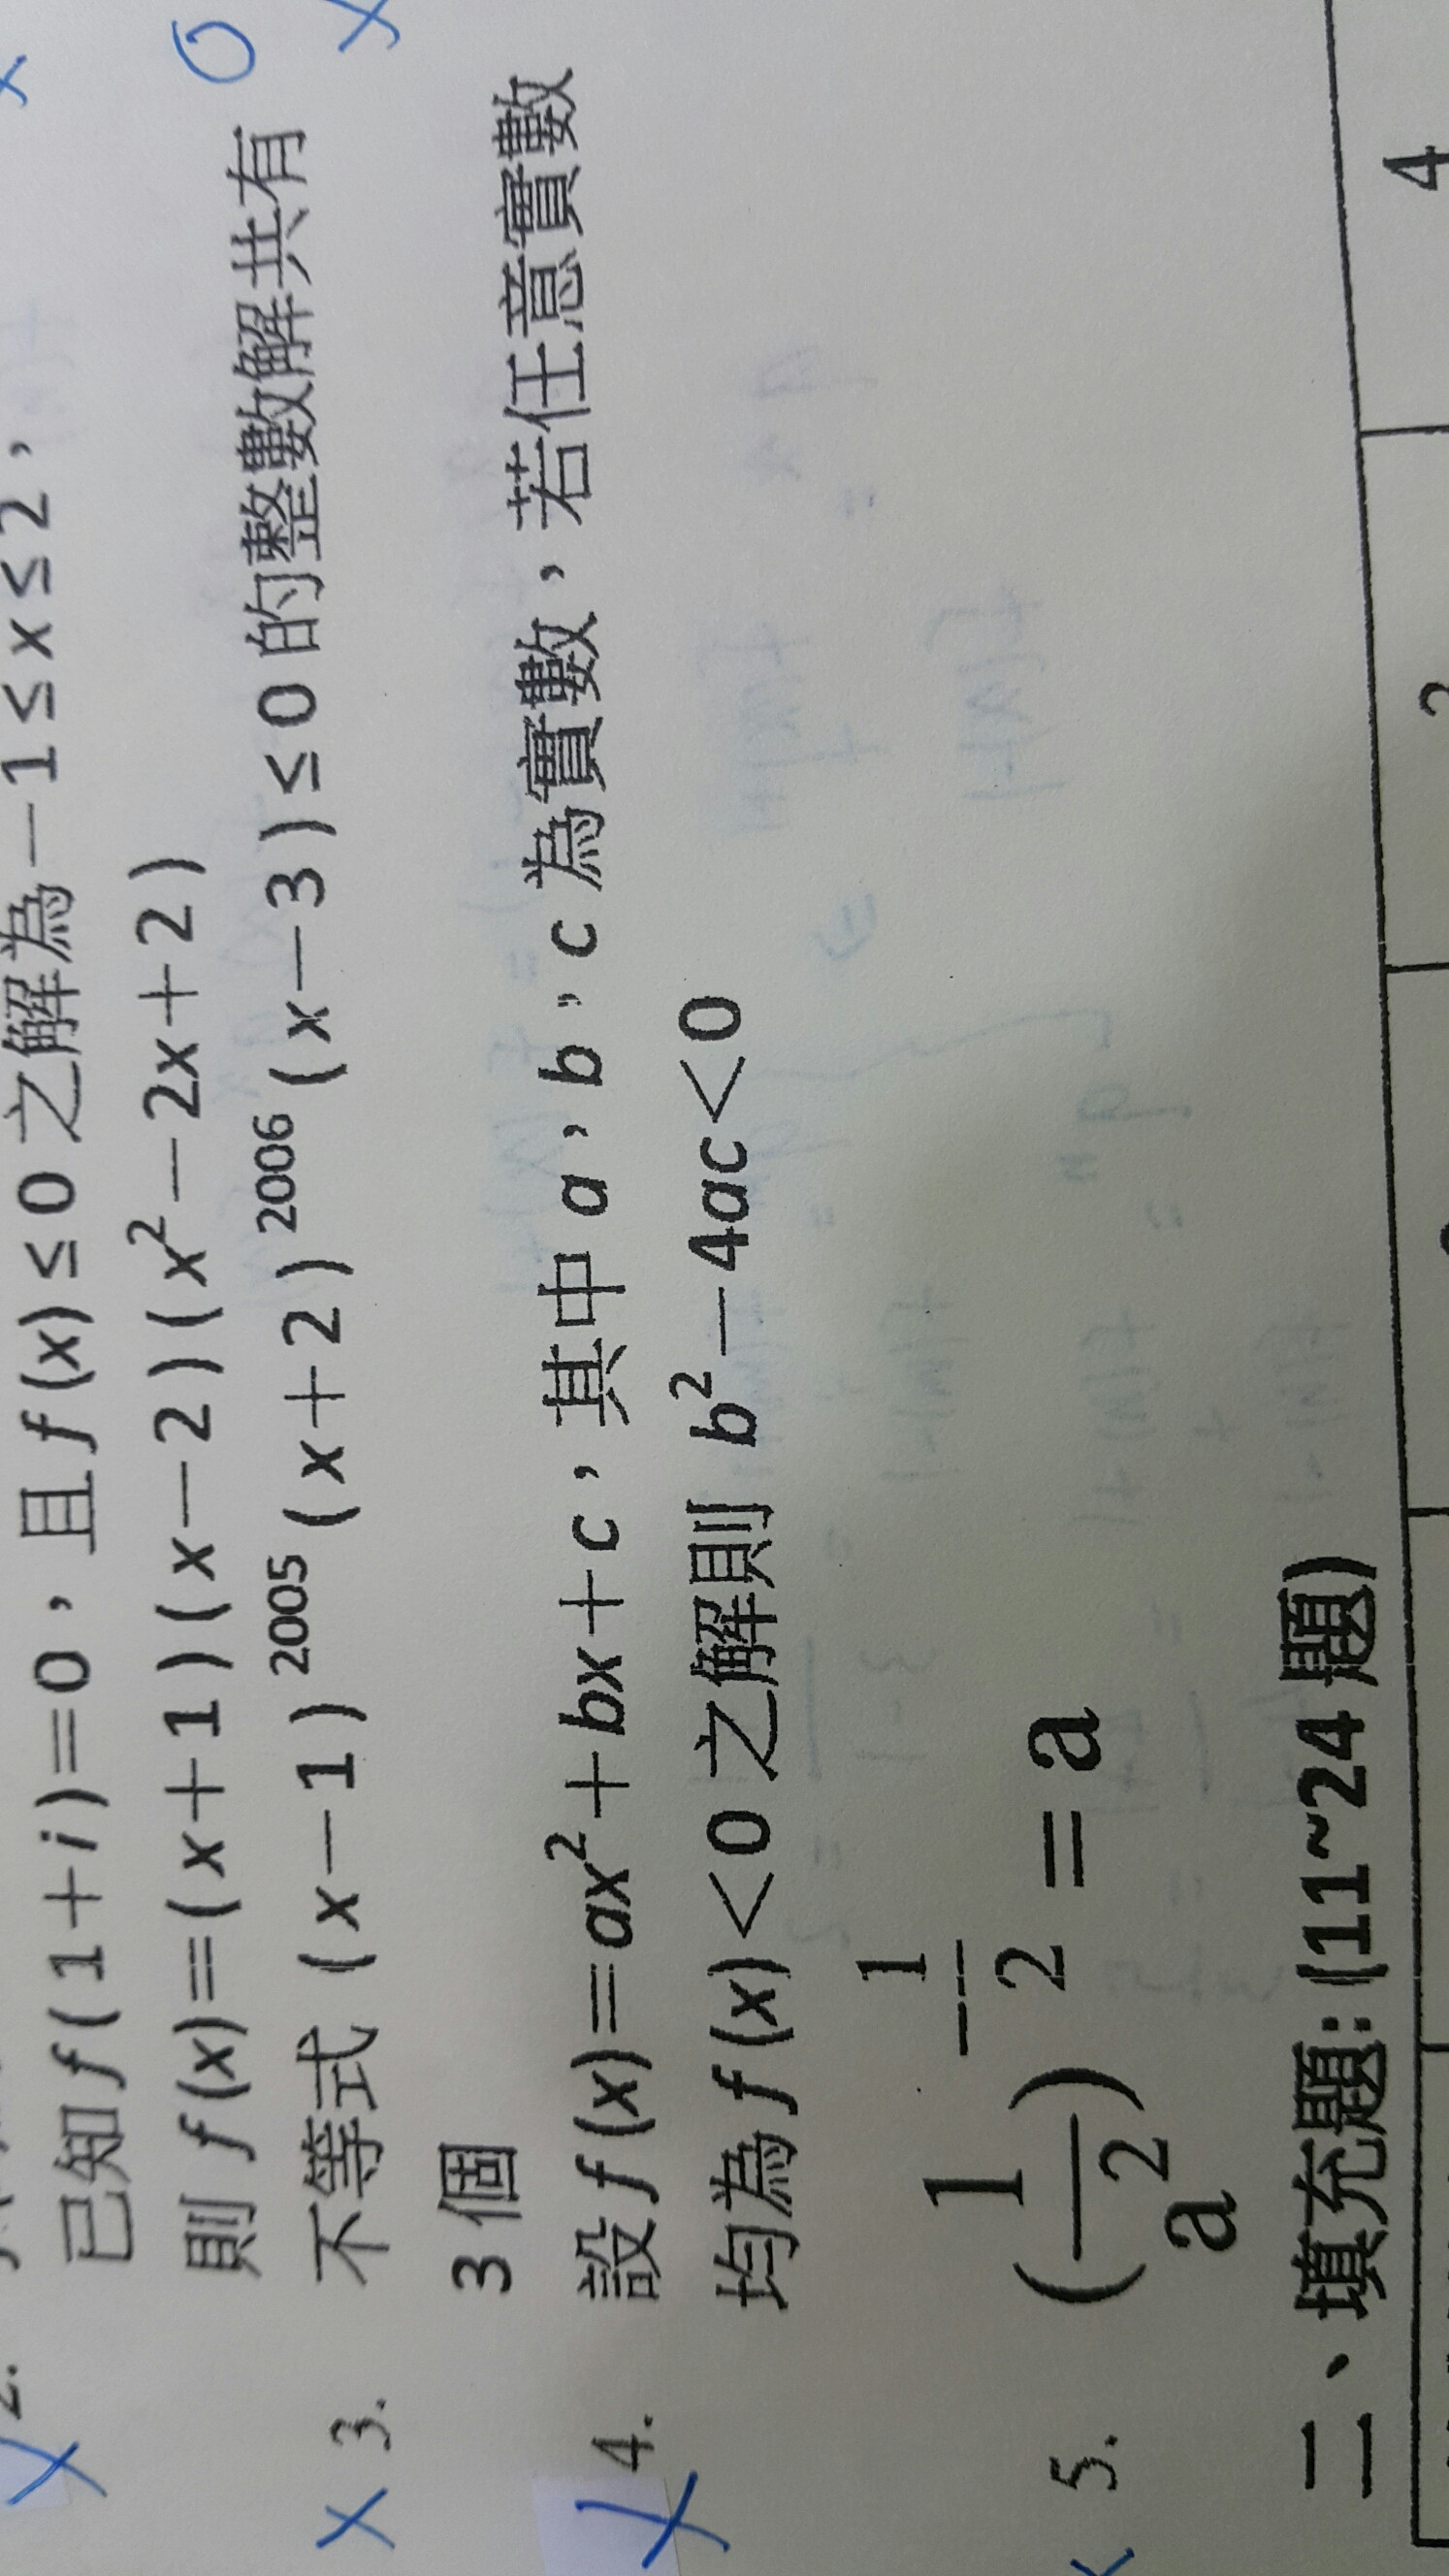 2.
已知 f(1+i)=0，且 f(x)≤0 之解為 −1≤x≤2，
則 f(x)=(x+1)(x−2)(x²−2x+2)
3. 不等式 (x−1)²⁰⁰⁵(x+2)²⁰⁰⁶(x−3)≤0 的整數解共有
3 個
4. 設 f(x)=ax²+bx+c，其中 a，b，c 為實數，若任意實數
均為 f(x)<0 之解則 b²−4ac<0
5. (1/a²)^(−1/2)=a
二、填充題：(11~24 題)
4